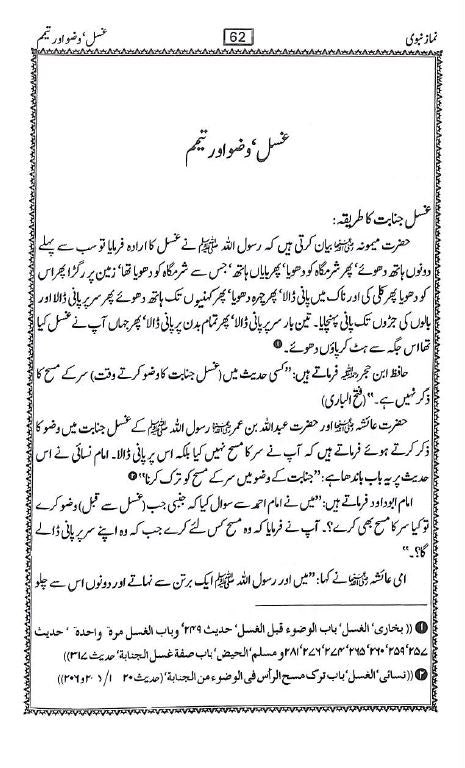 نماز نبوی 62 غسل، وضو اور تیمم
غسل، وضو اور تیمم
غسل جنابت کا طریقہ:
حضرت میمونہ رضی اللہ عنہا بیان کرتی ہیں کہ رسول اللہ ﷺ نے غسل کا ارادہ فرمایا تو سب سے پہلے
دونوں ہاتھ دھوئے، پھر شرمگاہ کو دھویا، پھر بایاں ہاتھ، جس سے شرمگاہ کو دھویا تھا، زمین پر رگڑا پھر اس
کو دھویا پھر کلی کی اور ناک میں پانی ڈالا، پھر چہرہ دھویا، پھر کہنیوں تک ہاتھ دھوئے پھر سر پر پانی ڈالا اور
بالوں کی جڑوں تک پانی پہنچایا۔ تین بار سر پر پانی ڈالا، پھر تمام بدن پر پانی ڈالا، پھر جہاں آپ نے غسل کیا
تھا اس جگہ سے ہٹ کر پاؤں دھوئے۔ ①
حافظ ابن حجر رحمہ اللہ فرماتے ہیں: "کسی حدیث میں (غسل جنابت کا وضو کرتے وقت) سر کے مسح کا
ذکر نہیں ہے۔" (فتح الباری)
حضرت عائشہ رضی اللہ عنہا اور حضرت عبداللہ بن عمر رضی اللہ عنہما رسول اللہ ﷺ کے غسل جنابت میں وضو کا
ذکر کرتے ہوئے فرماتے ہیں کہ آپ نے سر کا مسح نہیں کیا بلکہ اس پر پانی ڈالا۔ امام نسائی نے اس
حدیث پر یہ باب باندھا ہے: "جنابت کے وضو میں سر کے مسح کو ترک کرنا" ②
امام ابوداود فرماتے ہیں: "میں نے امام احمد سے سوال کیا کہ جنبی جب (غسل سے قبل) وضو کرے
تو کیا سر کا مسح بھی کرے؟۔ آپ نے فرمایا کہ وہ مسح کس لئے کرے جب کہ وہ اپنے سر پر پانی ڈالے
گا؟۔"
امی عائشہ رضی اللہ عنہا نے کہا: "میں اور رسول اللہ ﷺ ایک برتن سے نہاتے اور دونوں اس سے چلو
① ((بخاری، الغسل، باب الوضوء قبل الغسل، حدیث ۲۴۹، وباب الغسل مرة واحدة، حدیث
۲۵۷، ۲۵۹، ۲۶۰، ۲۶۵، ۲۷۴، ۲۷۶، ۲۸۱ و مسلم، الحیض، باب صفة غسل الجنابة، حدیث ۳۱۷))
② ((نسائی، الغسل، باب ترک مسح الرأس فی الوضوء من الجنابة، (حدیث